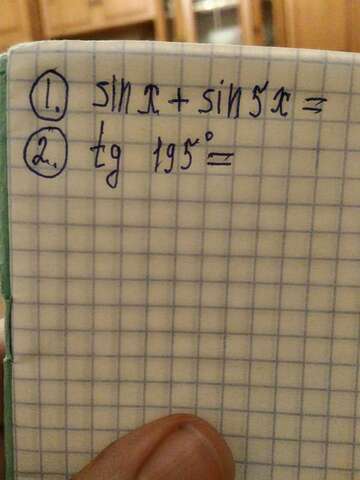 1. sin x + sin 5x =
2. tg 195° =